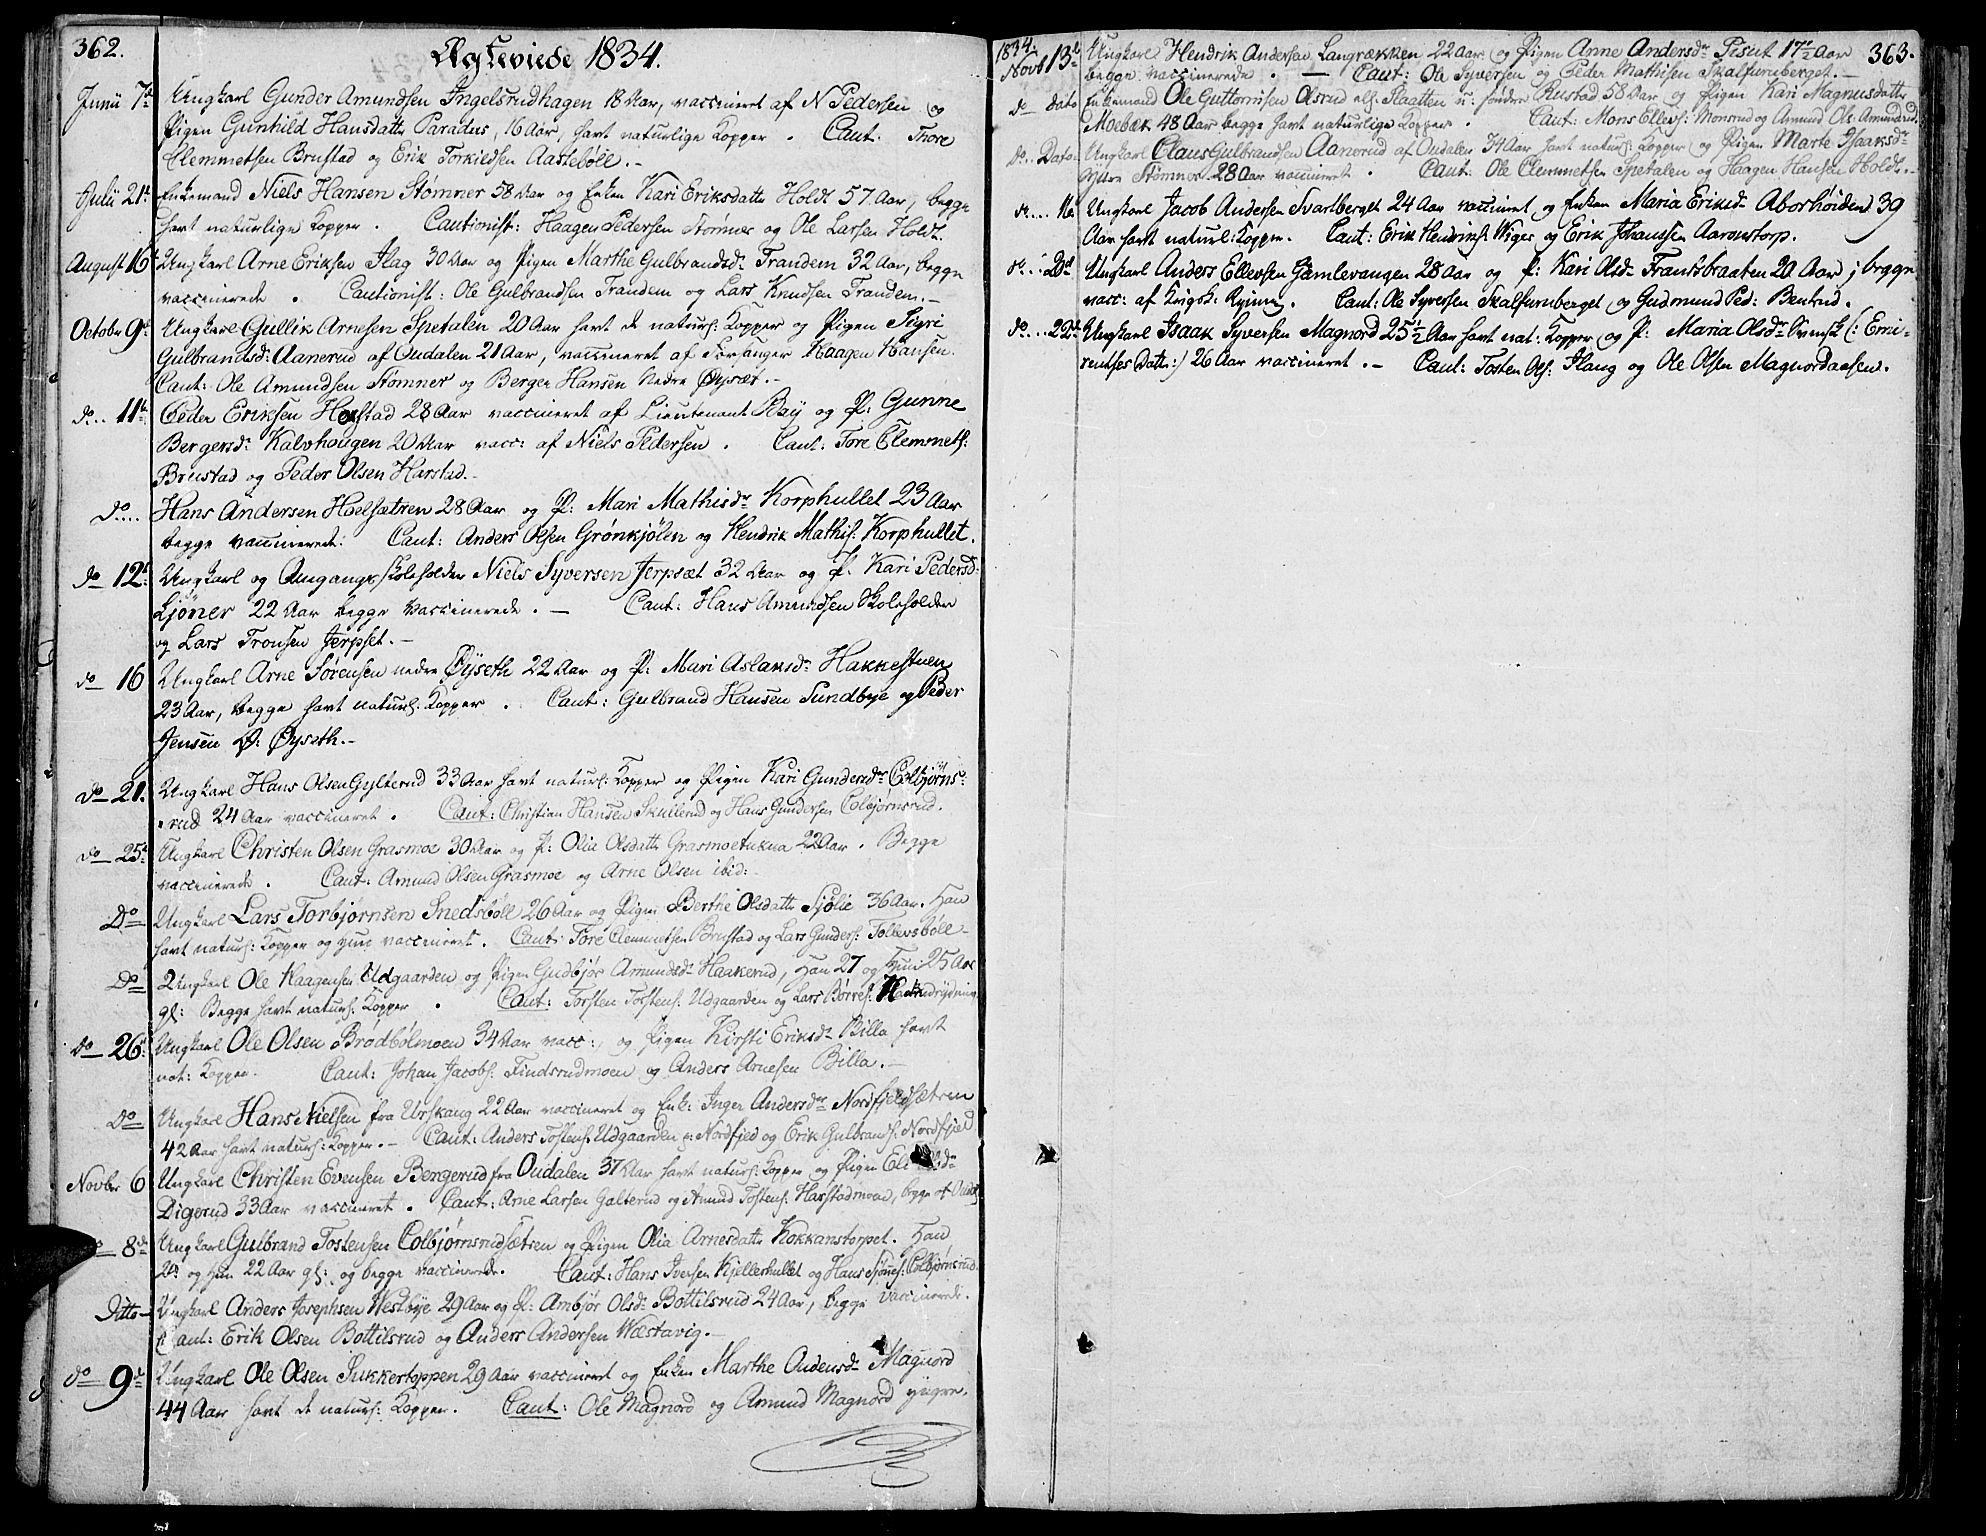 362.
Ægteviede 1834.
Junii 7de Ungkarl Gunder Amundsen Ingelsrudhagen 18 Aar, vaccineret af N Pedersen og
Pigen Gunhild Hansdattr Paradus, 16 Aar, havt naturlige Kopper. Caut. Thore
Clemmetsen Brustad og Erik Torkildsen Aastebøll.-
Julii 21de Enkemand Niels Hansen Stømner 58 Aar og Enken Kari Eriksdattr Holdt 57 Aar, begge
havt naturlige Kopper. Cautionist: Haagen Pedersen Stømner og Ole Larsen Holdt.
August 16t Ungkarl Arne Eriksen Flag 30 Aar og Pigen Marthe Gulbrandsdr Trandem 32 Aar, begge
vaccinerede. Cautionist: Ole Gulbrandsen Trandem og Lars Knudsen Trandem.-
Octobr 9de Ungkarl Gullik Arnesen Spetalen 20 Aar havt de naturl: Kopper og Pigen Sigri
Gulbrandsdr Aanerud af Oudalen 21 Aar, vaccineret af Forsanger Haagen Hansen.
Caut: Ole Amundsen Stømner og Berger Hansen Nedre Øysæt.-
do.. 11te Peder Eriksen Harstad 28 Aar vaccineret af Lieutenant Bay og P: Gunne
Bergersdr Kalvhougen 20 Aar vacc: af Niels Pedersen. Caut: Tore Clemmets:
Brustad og Peder Olsen Harstad.-
do.... Hans Andersen Hoelsætren 28 Aar og P: Mari Mathisdr Korphullet 23 Aar
begge vaccinerede. Caut: Anders Olsen Grønkjølen og Hendrik Mathis: Korphullet.
do 12t Ungkarl og Omgangsskoleholder Niels Syversen Jerpsæt 32 Aar og P. Kari Pedersd:
Ljöner 22 Aar begge vaccinerede. - Caut: Hans Amundsen Skoleholder
og Lars Tronsen Jerpset.-
do 16 Ungkarl Arne Sørensen nedre Øyseth 22 Aar og P: Mari Aslaksdr Hakkestuen
23 Aar, begge havt naturl: Kopper. Caut: Gulbrand Hansen Sundbye og Peder
Jensen Ø: Øyseth.-
do 21. Ungkarl Hans Olsen Gylterud 33 Aar havt naturl: Kopper og Pigen Kari Gundersdr Colbjørns-
rud 24 Aar vaccineret. Caut: Christian Hansen Skullerud og Hans Gundersen Colbjørnsrud.
do 25t Ungkarl Christen Olsen Grasmoe 30 Aar og P: Olia Olsdattr Grasmoe 22 Aar. Begge
vaccinerede. Caut: Amund Olsen Grasmoe og Arne Olsen ibid:-
Do Ungkarl Lars Torbjørnsen Snedsböll 26 Aar og Pigen Berthe Olsdattr Sjølie 36 Aar. Han
havt naturl: Kopper og hun vaccineret. Caut: Tore Clemmetsen Brustad og Lars Gunders: Tollevsbøle-
Do Ungkarl Ole Haagensen Udgaarden og Pigen Gudbjør Amundsdr Haakerud, Han 27 og Hun 25 Aar
gl: Begge havt naturl: Kopper. Caut: Torsten Tostens: Udgaarden og Lars Børres:
do 26t Ungkarl Ole Olsen Brødbølmoen 34 Aar vacc:, og Pigen Kirsti Eriksdr Billa havt
nat: Kopper. Caut: Johan Jacobs: Findsrudmoen og Anders Arnesen Billa.-
Do Ungkarl Hans Nielsen fra Urskaug 22 Aar vaccineret og Enk: Inger Andersdr Nordfjeldsætren
42 Aar havt naturl: Kopper.- Caut: Anders Tostens: Udgaarden Nordfjed og Erik Gulbrands: Nordfjeld
Novbr 6 Ungkarl Christen Evensen Bergerud fra Oudalen 37 Aar havt naturl: Kopper, og Pigen
Digerud 33 Aar vaccineret. Caut: Arne Larsen Galterud og Amund Tostens: Harstadmoen, begge af Oudal
8de Ungkarl Gulbrand Tostensen Colbjørnsrudsætren og Pigen Olia Arnesdattr Kokkanstorpet. Han
og Hun 22 Aar gl: og begge vaccinerede. Caut: Hans Iversen Kjellerhullet og Hans Colbjørnsrud.
Ditto- Ungkarl Anders Josephsen Westbye 29 Aar og P: Ambjør Olsdr Bottilsrud 24 Aar, begge vaccinerede.
Caut: Erik Olsen Bottilsrud og Anders Andersen Wæstavig.-
do 9de Ungkarl Ole Olsen Sukkertoppen 29 Aar vaccineret og Enken Marthe Oudensdr Magnord
44 Aar havt de naturl: Kopper. Caut: Ole Magnord og Amund Magnord
363.
1834.
Novb 13d Ungkarl Hendrik Andersen Langrækken 22 Aar og Pigen Anne Andersdr Pisut 17½ Aar
begge vaccinerede. - Caut: Ole Syversen og Peder Mathisen Skalfurruberget.-
do dato Enkemand Ole Guttormsen Olsrud ell: Plaatten u: søndre Rustad 58 Aar og Pigen Kari Magnusdattr
Moebæk 48 Aar begge havt naturlige Kopper. Caut: Mons Ellevs: Monsrud og Amund Ols: Amundrud
do.. Dato Ungkarl Claus Gulbrandsen Aanerud af Oudalen 34 Aar havt naturl: Kopper og Pigen Marte Isaksdr
Yttre Stømner 28 Aar vaccineret. Caut: Ole Clemmetsen Spetalen og Haagen Hansen Holdt.-
do.... 16 Ungkarl Jacob Andersen Svartberget 24 Aar vaccineret og Enken Maria Eriksdr Aborhøiden 39
Aar havt naturl: Kopper. Caut: Erik Hendriks: Wiger og Erik Johanssen Aarnstorp.
do... 20d Ungkarl Anders Ellevsen Gamlevangen 28 Aar og P: Kari Olsdr Fransbraaten 20 Aar; begge
vacc: af Krigsk: Ryning. Caut: Ole Syversen Skalfurruberget, og Gudmund Ped: Bentrud.
do... 29de Ungkarl Isaak Syversen Magnord 25½ Aar havt nat: Kopper og P: Maria Olsdr Svensk (: Emi-
rentses Dattr:) 26 Aar vaccineret.- Caut: Tosten Ols: Haug og Ole Olsen Magnordaasen.